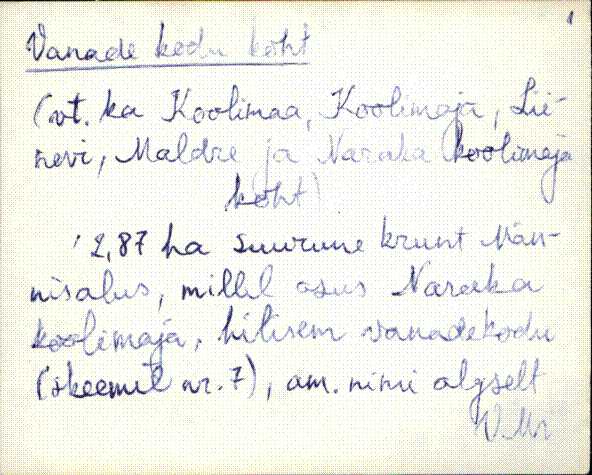 1
Vanade kodu koht
(vt. ka Koolimaa, Koolimaja, Lii-
nevi, Maldre ja Naraka koolimaja
koht)
2,87 ha suurune krunt Män-
nisalus, millel asus Nareka
koolimaja, hilisem vanadekodu
(skeemil nr. 7), am. nimi algselt
V. Mr